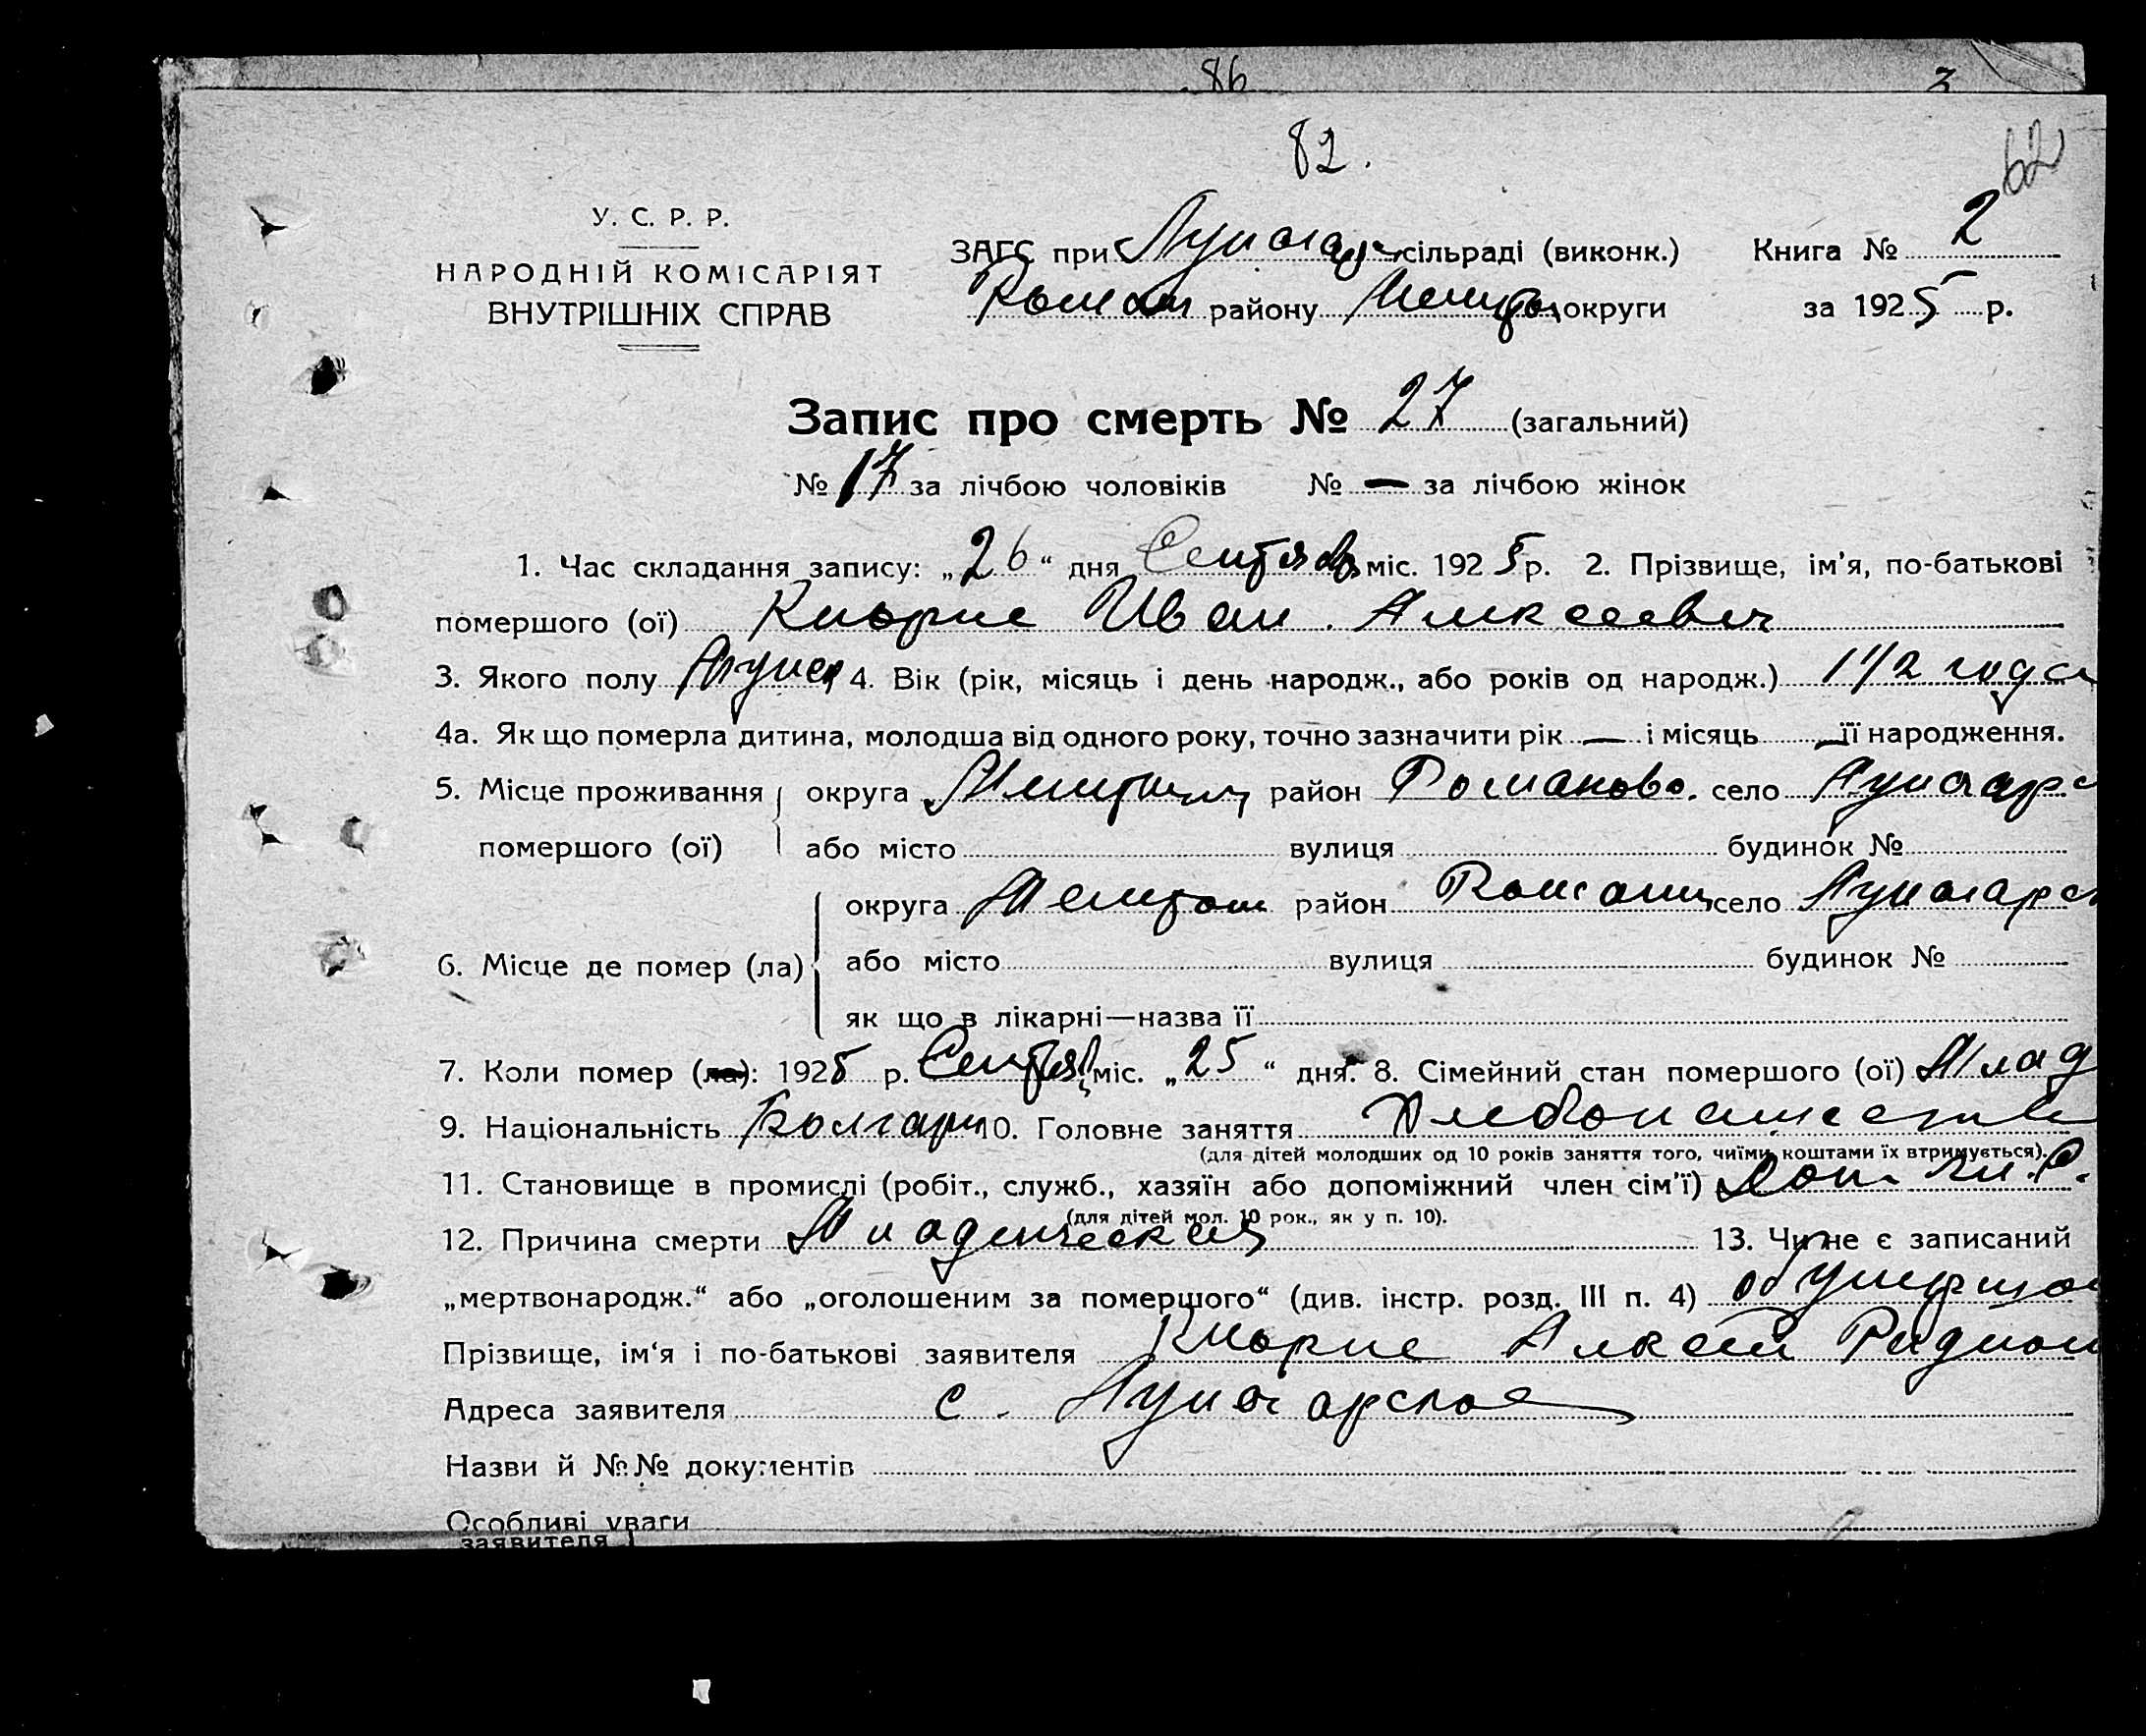 86 3
82.
62
У. С. Р. Р.
НАРОДНІЙ КОМІСАРІЯТ
ВНУТРІШНІХ СПРАВ
ЗАГС при сільраді (виконк.) Книга № 2
Роман району округи за 1925 р.
Запис про смерть № 27 (загальний)
№ 17 за лічбою чоловіків № — за лічбою жінок
1. Час складання запису: „26“ дня Сентяб міс. 1925 р. 2. Прізвище, ім'я, по-батькові
помершого (ої) Кюрпе Иван Алексеевич
3. Якого полу Мужск 4. Вік (рік, місяць і день народж., або років од народж.) 1 1/2 года
4а. Як що померла дитина, молодша від одного року, точно зазначити рік — і місяць — її народження.
5. Місце проживання округа район Романово. село
помершого (ої) або місто вулиця будинок №
округа район Романов село
6. Місце де помер (ла) або місто вулиця будинок №
як що в лікарні—назва її
7. Коли помер (ла): 1925 р. Сентяб міс. „25“ дня. 8. Сімейний стан помершого (ої) Млад
9. Національність Болгарин 10. Головне заняття Хлебопашество
(для дітей молодших од 10 років заняття того, чиїми коштами їх втримується).
11. Становище в промислі (робіт., служб., хазяїн або допоміжний член сім'ї)
(для дітей мол. 10 рок., як у п. 10).
12. Причина смерти Младенческая 13. Чи не є записаний
„мертвонародж.“ або „оголошеним за помершого“ (див. інстр. розд. III п. 4) об умершом
Прізвище, ім'я і по-батькові заявителя Кюрпе Алексей Радион
Адреса заявителя с. Луначарское
Назви й №№ документів
Особливі уваги
заявителя